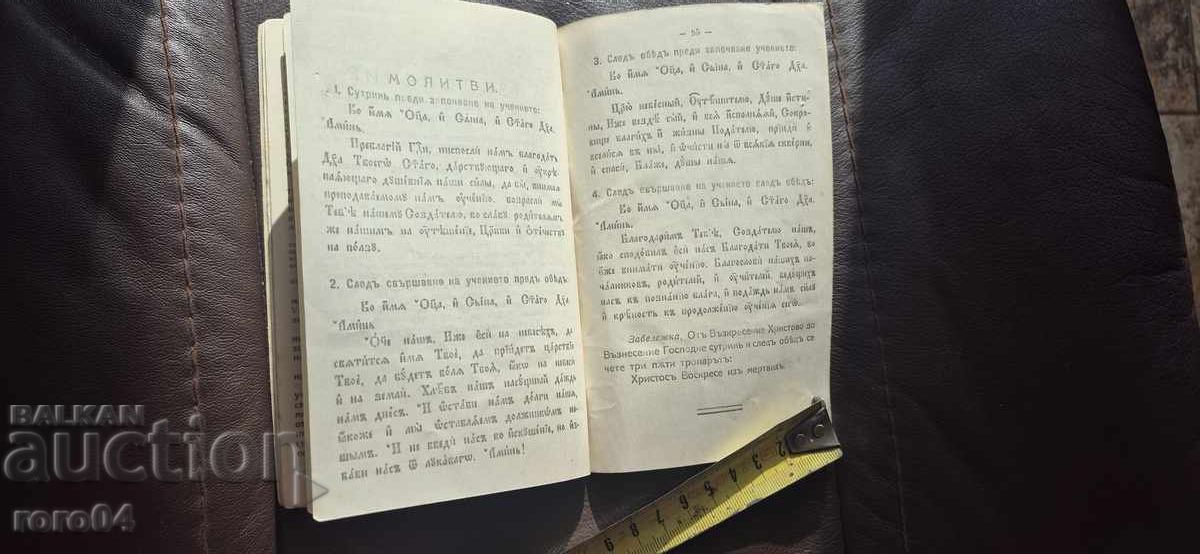 МОЛИТВИ.
1. Сутринь преди започване на учението:
Во и҆мѧ Ѻ҆ц҃а, и҆ Сы́на, и҆ Ст҃а́го Дх҃а.
А҆ми́нь.
Пребл҃гі́й Гдⷭ҇и, низпослѝ на́мъ благода́ть
Дх҃а Твоегѡ̀ Ст҃а́го, да́рствующаго и҆ ᲂу҆крѣ-
плѧ́ющаго дꙋше́вныѧ на́ши си́лы, да бы̀, внима́ѧ
преподава́емомꙋ на́мъ ᲂу҆че́нїю, возраслѝ мы̀
Тебѣ̀ на́шемꙋ Созда́телю, во сла́вꙋ, роди́телѧм-
же на́шимъ на ᲂу҆тѣше́нїе, Цр҃кви и҆ Ѻ҆те́чествꙋ
на по́льзꙋ.
2. Следъ свършване на учението предъ обѣдъ:
Во и҆мѧ Ѻ҆ц҃а, и҆ Сы́на, и҆ Ст҃а́го Дх҃а.
А҆ми́нь
Ѻ҆́ч҃е на́шъ, И҆́же є҆сѝ на нб҃сѣ́хъ, да
свѧти́тсѧ и҆́мѧ Твоѐ, да прїи́детъ ца́рствїе
Твоѐ, да бꙋ́детъ во́лѧ Твоѧ̀, ꙗ҆́кѡ на небесѝ
и҆ на землѝ. Хлѣ́бъ на́шъ насꙋ́щный да́ждь
на́мъ дне́сь. И҆ ѡ҆ста́ви на́мъ до́лги на́ша,
ꙗ҆́коже и҆ мы̀ ѡ҆ставлѧ́емъ должникѡ́мъ на-
шымъ. И҆ не введѝ на́съ во и҆скꙋше́нїе, но и҆з-
ба́ви на́съ ѿ лꙋка́вагѡ. А҆ми́нь!
— 95 —
3. Следъ обѣдъ преди започване учението:
Во и҆мѧ Ѻ҆ц҃а, и҆ Сы́на, и҆ Ст҃а́го Дх҃а.
А҆ми́нь.
Цр҃ю̀ нб҃е́сный, Оу҆тѣ́шителю, Дꙋ́ше и҆́сти-
ны, И҆́же вездѣ̀ сы́й, и҆ всѧ̑ и҆сполнѧ́ѧй, Сокро́-
вище благи́хъ и҆ жи́зни Пода́телю, прїидѝ и҆
всели́сѧ въ ны̀, и҆ ѡ҆чи́сти ны̀ ѿ всѧ́кїѧ скве́рны,
и҆ спасѝ, Бла́же, дꙋ́шы на́шѧ.
4. Следъ свършване на учението следъ обѣдъ:
Во и҆мѧ Ѻ҆ц҃а, и҆ Сы́на, и҆ Ст҃а́го Дх҃а.
А҆ми́нь.
Благодари́мъ Тебѣ̀, Созда́телю на́шъ,
ꙗ҆́кѡ сподо́билъ є҆сѝ на́съ Благода́ти Твоеѧ̀, во
є҆́же внима́ти ᲂу҆че́нїю. Благословѝ на́шихъ на-
ча́льников, роди́телей, и҆ ᲂу҆чи́телей, ведꙋ́щихъ
на́съ къ позна́нїю бла́га, и҆ пода́ждь на́мъ си́лꙋ
и҆ крѣ́пость къ продолже́нїю ᲂу҆че́нїѧ сегѡ̀.
Забележка. Отъ Възкресение Христово до
Възнесение Господне сутринь и следъ обѣдъ се
чете три пѫти тропарътъ:
Христосъ Воскресе изъ мертвихъ
2 3 4 5 6 7 8 9
BALKAN
auction
roro04